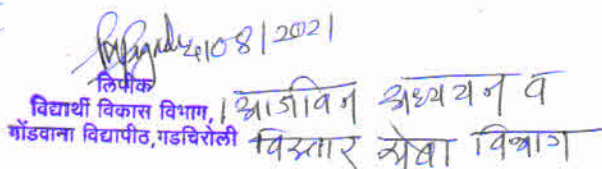 4/08/2021
लिपीक
विद्यार्थी विकास विभाग, / आजीवन अध्ययन व
गोंडवाना विद्यापीठ, गडचिरोली विस्तार सेवा विभाग